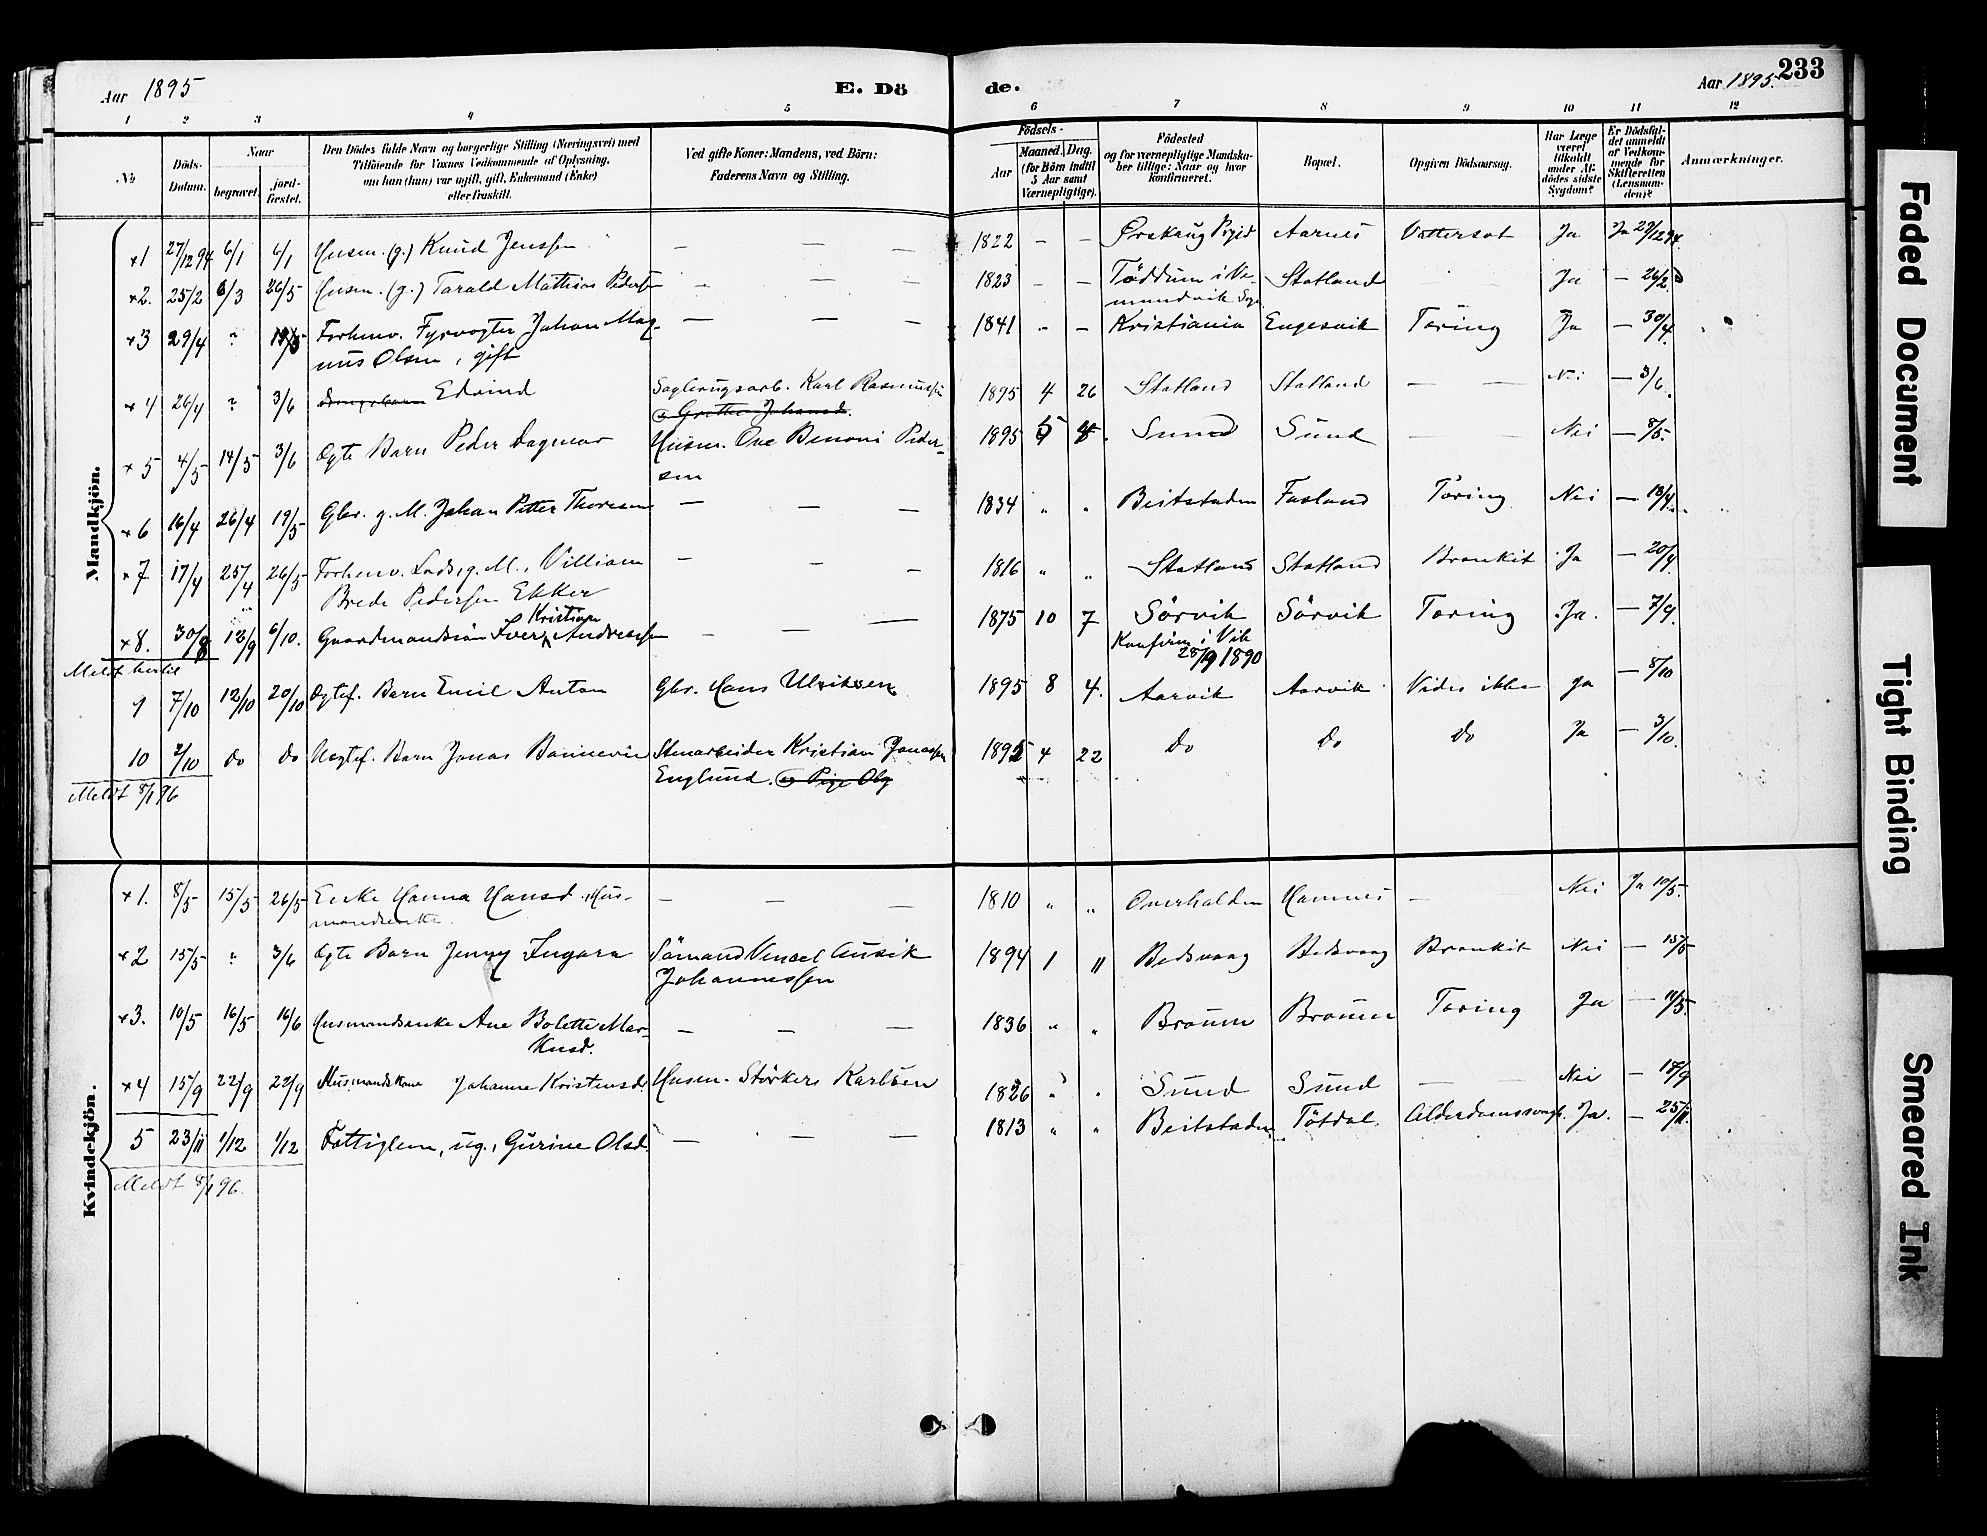 Aar 1895
E. Dö
de.
Aar 1895.
233
1 2 3 4 5 6 7 8 9 10 11 12
No
Döds-Datum.
Naar
begravet.
jord-fæstet.
Den Dödes fulde Navn og borgerlige Stilling (Næringsvei) med
Tilföiende for Voxnes Vedkommende af Oplysning,
om han (hun) var ugift, gift, Enkemand (Enke)
eller fraskilt.
Ved gifte Koner: Mandens, ved Börn:
Faderens Navn og Stilling.
Födsels-
Aar
Maaned. Dag.
(for Börn indtil
5 Aar samt
Værnepligtige).
Födested
og for værnepligtige Mandska-
ber tillige: Naar og hvor
konfirmeret.
Bopæl.
Opgiven Dödsaarsag.
Har Læge
været
tilkaldt
under Af-
dödes sidste
Sygdom?
Er Dödsfal-
det anmeldt
af Vedkom-
mende for
Skifteretten
(Lensman-
den)?
Anmærkninger.
Mandkjön.
×1 27/12 94 6/1 6/1 Husm. (g.) Knud Jenssen — — — 1822 – – Ørskaug Prgjd Aarnes Vattersot Ja Ja 29/12 94
×2. 25/2 6/3 26/5 Husm. (g.) Tarald Mathias Pedersen – — — 1823 – – Töddum i Ve-
mundvik Sogn Statland Ja — 26/2.
×3 29/4 " Forhenv. Fyrvogter Johan Mag-
nus Olsen, gift — — — 1841 – – Kristiania Engesvik Tæring Ja — 30/4.
×4 26/4 " 3/6 Edvind Saglbrugsarb. Karl Rasmussen
1895 4 26 Statland Statland — — Nei — 3/6.
×5 4/5 14/5 3/6 Ægte Barn Peder Dagmar Husm. Ove Benoni Peder-
sen 1895 5 4 Sund Sund — — Nei — 8/5.
×6 16/4 26/4 19/5 Gbr. g. M. Johan Petter Thoresen — — — 1834 " " Beitstaden Fosland Tæring Nei — 18/4.
×7 17/4 25/4 26/5 Forhenv. Lods, g. M., Villiam
Brede Pedersen Ekker — — — 1816 " " Statland Statland Bronkit Ja — 20/4
×8. 30/8 12/9 6/10. Gaardmandssön Iver Kristian Andreassen — — — 1875 10 7 Sörvik Sörvik Tæring Ja. — 7/9.
Konfirm. i Vik
28/9 1890
Meldt hertil
9 7/10 12/10 20/10 Ægtef. Barn Emil Anton Gbr. Hans Ulriksen 1895 8 4. Aarvik Aarvik Vides ikke Ja — 8/10
10 2/10 do do Uegtef. Barn Jonas Bonnevie Stenarbeider Kristian Jonassen
Englund. og Pige Olg 1895 4 22 do do do Ja — 3/10.
Meldt 8/1 96
Kvindekjön.
×1. 8/5 15/5 26/5 Enke Hanna Hansd. Hus-
mandsenke. — — — 1810 " " Overhalden Hamnes — Nei Ja 10/5.
×2 15/5 " 3/6 Ægte Barn Jenny Ingara Sömand Vensel Ausik
Johannessen 1894 1 11 Bedsvaag Bedsvaag Bronkit Nei — 15/5
×3. 10/5 16/5 16/6 Husmandsenke Ane Bolette Mar-
kusd. — — — 1836 " " Braaen Braaen Tæring Ja — 11/5.
×4 15/9 22/9 22/9 Husmandskone Johanne Kristensd. Husm. Störkers Karlsen 1826 " " Sund Sund — — Nei — 18/9
5 23/11 1/12 1/12 Fattiglem, ug., Gurine Olsd. — — — 1813 " " Beitstaden Tötdal. Alderdomssvagh. Ja. — 25/11.
Meldt 8/1 96.
Faded Document
Tight Binding
Smeared Ink